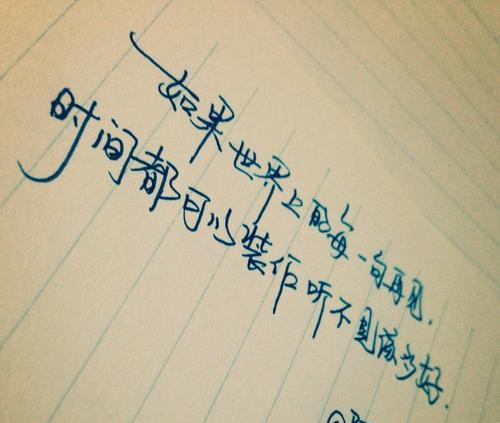 如果世界上的每一句再见,
时间都可以装作听不见该多好.